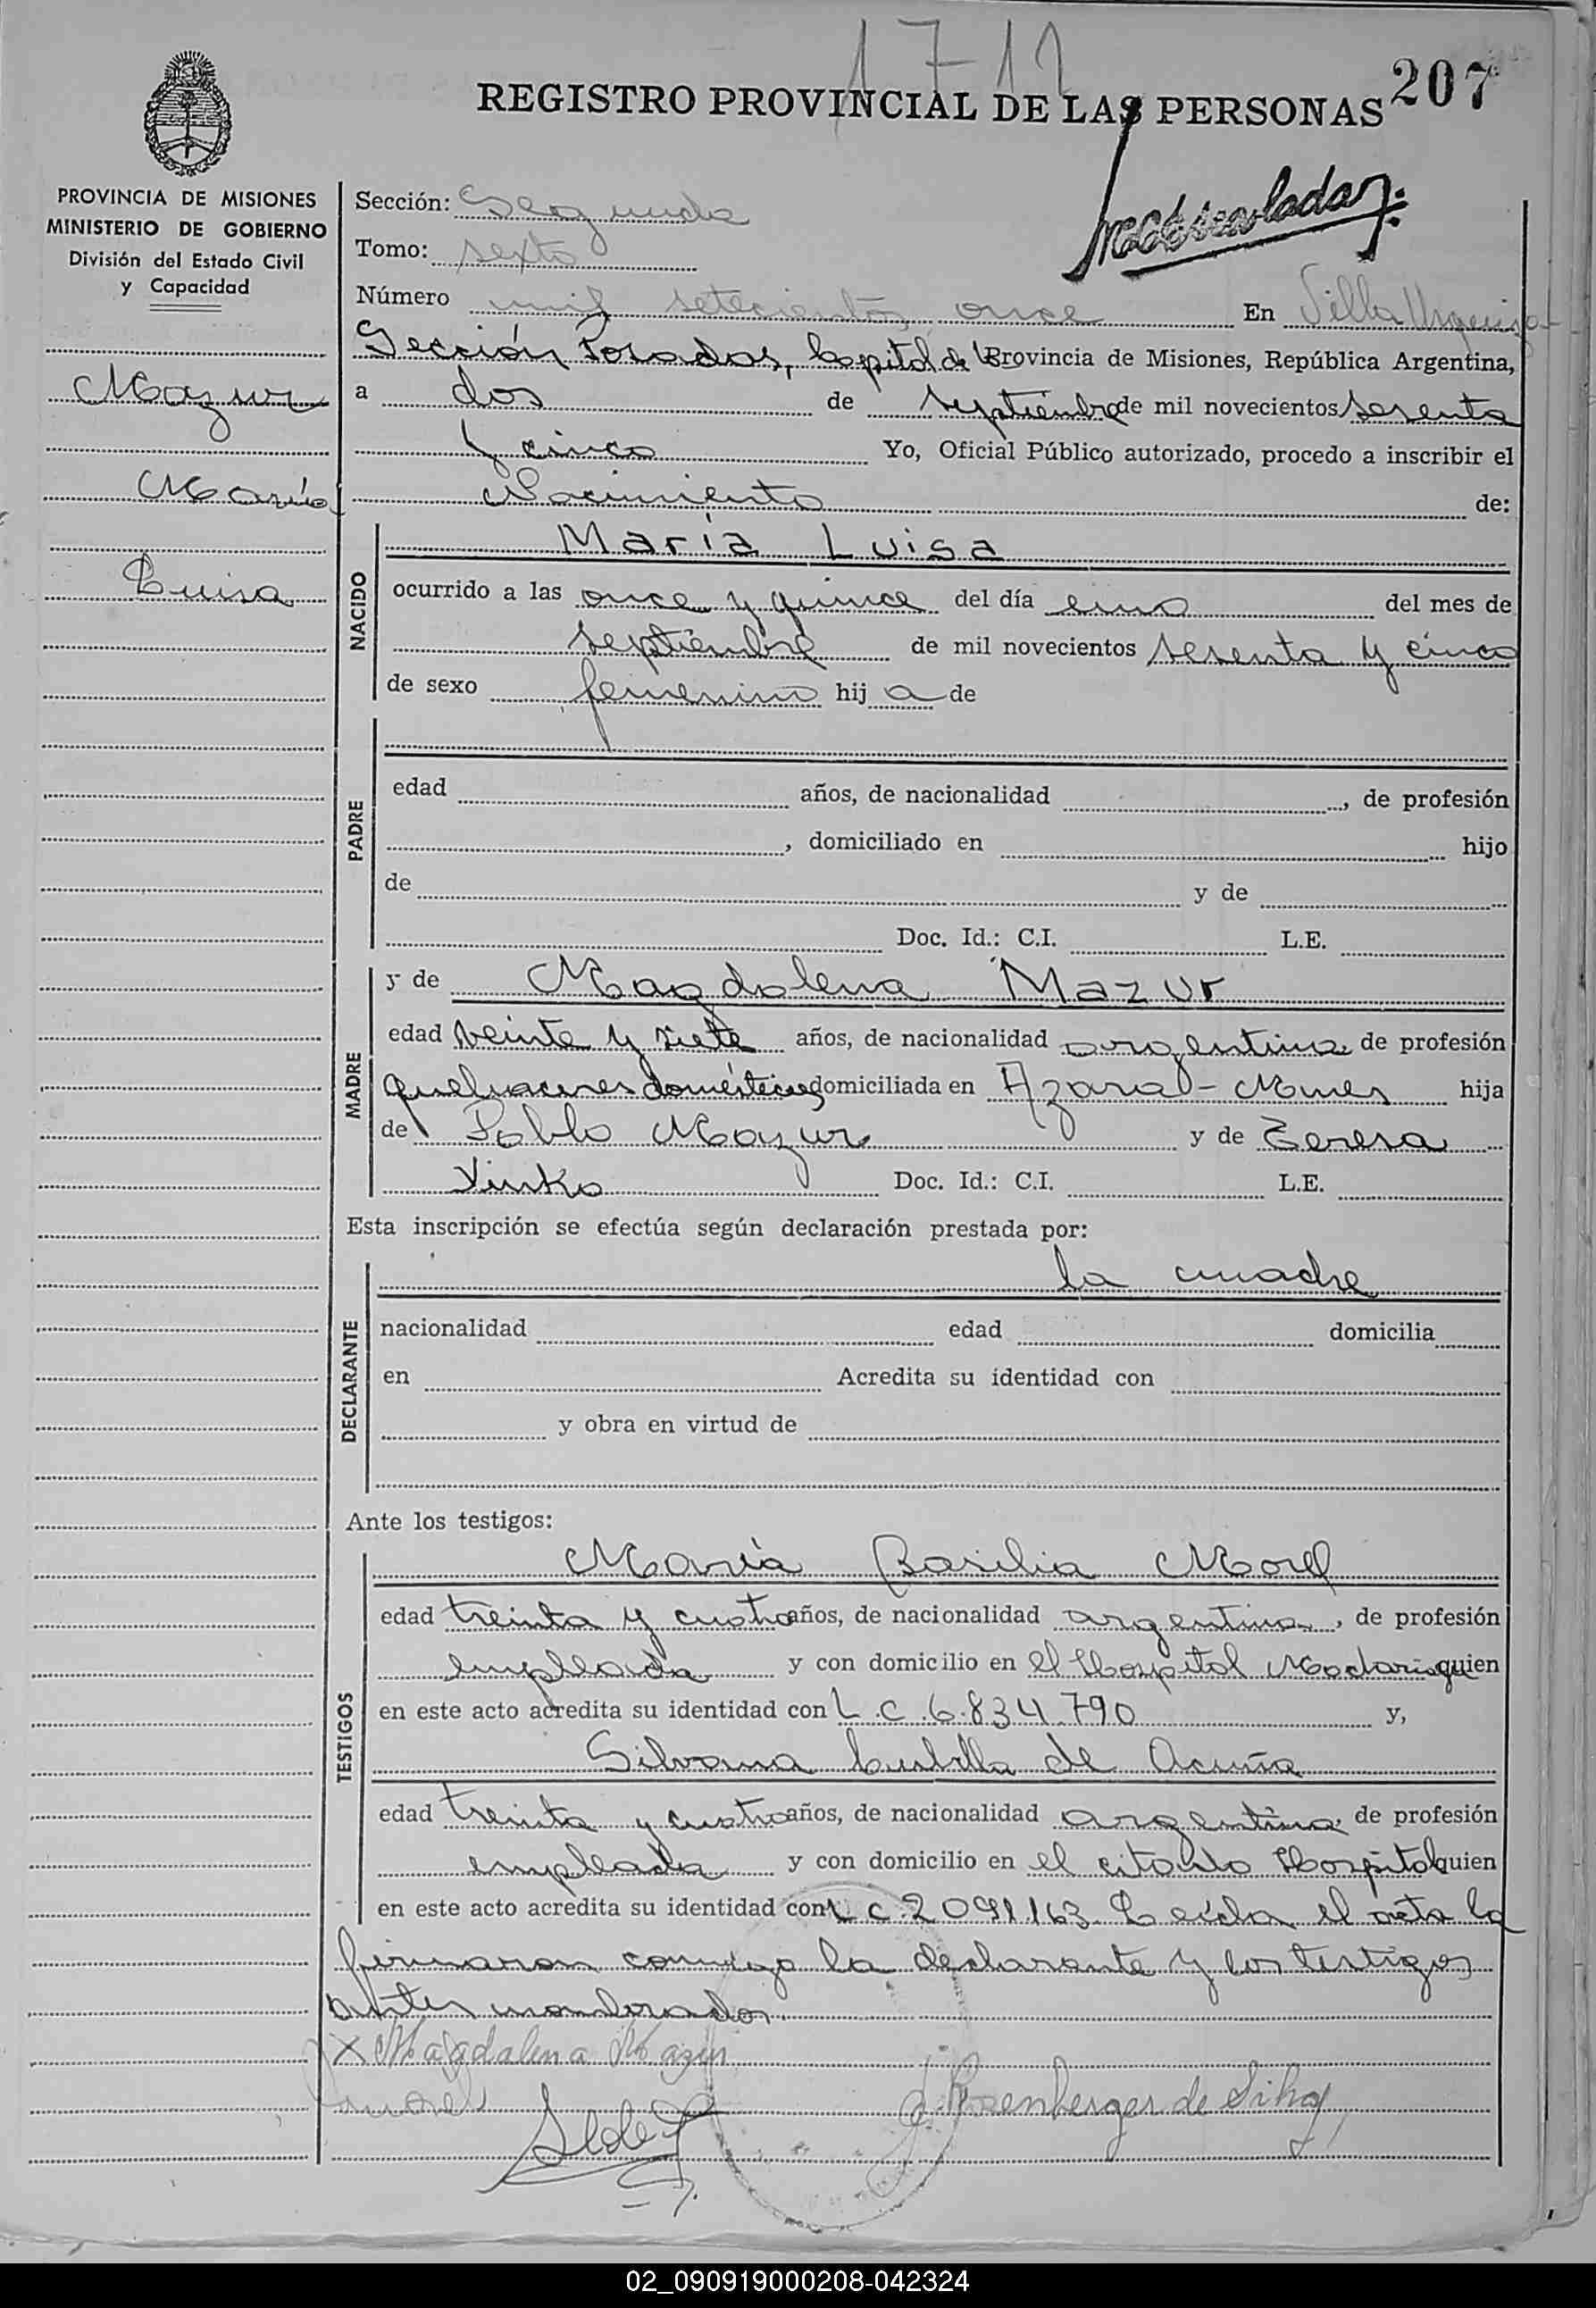 1712
207
REGISTRO PROVINCIAL DE LAS PERSONAS
PROVINCIA DE MISIONES
MINISTERIO DE GOBIERNO
División del Estado Civil
y Capacidad
Mazur
María
Luisa
Sección: Segunda
Tomo: sexto
Número mil setecientos once En Villa Urquiza
Sección Posadas, Capital de Provincia de Misiones, República Argentina,
a dos de septiembre de mil novecientos sesenta
y cinco Yo, Oficial Público autorizado, procedo a inscribir el
Nacimiento de:
NACIDO
María Luisa
ocurrido a las once y quince del día uno del mes de
septiembre de mil novecientos sesenta y cinco
de sexo femenino hij a de
PADRE
edad años, de nacionalidad , de profesión
, domiciliado en hijo
de y de
Doc. Id.: C.I. L.E.
MADRE
y de Magdalena Mazur
edad veinte y siete años, de nacionalidad argentina de profesión
quehaceres domésticos domiciliada en Azara - Mnes hija
de Pablo Mazur y de Teresa
Yinko Doc. Id.: C.I. L.E.
Esta inscripción se efectúa según declaración prestada por:
DECLARANTE
la madre
nacionalidad edad domicilia
en Acredita su identidad con
y obra en virtud de
Ante los testigos:
TESTIGOS
María Basilia Morel
edad treinta y cuatro años, de nacionalidad argentina, de profesión
empleada y con domicilio en el Hospital Madariaga quien
en este acto acredita su identidad con L.C. 6.834.790 y,
Silvana Cubilla de Acuña
edad treinta y cuatro años, de nacionalidad argentina de profesión
empleada y con domicilio en el citado Hospital quien
en este acto acredita su identidad con L C. 2091163. Leída el acta la
firmaron conmigo la declarante y los testigos
antes nombrados.
X Magdalena Mazur
Morel
Rosenberger de Silva
02_090919000208-042324